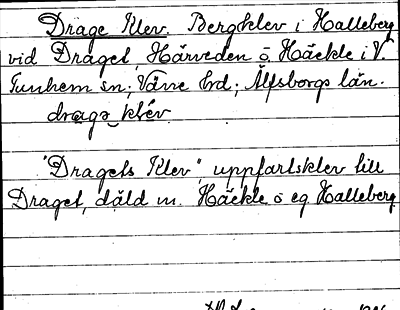 Drage Klev. Bergklev i Halleberg
vid Draget, Hårveden ö. Häckle i V.
Tunhem sn; Väne hd; Älfsborgs län.
dragə klév
"Dragets Klev" uppfartsklev till
Draget, däld m. Häckle o eg. Halleberg